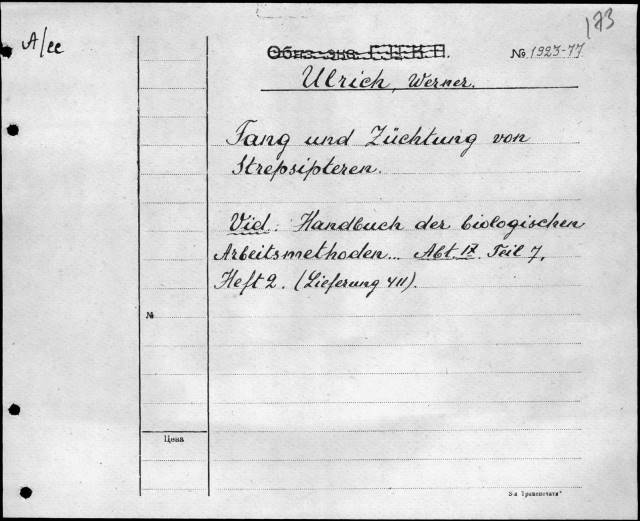 173
A/ee
№ 1923-77
Ulrich, Werner.
Fang und Züchtung von
Strepsipteren.
Vid. Handbuch der biologischen
Arbeitsmethoden... Abt. IX. Teil 7,
Heft 2. (Lieferung 411).
№
Цена
3-я Транспечать"